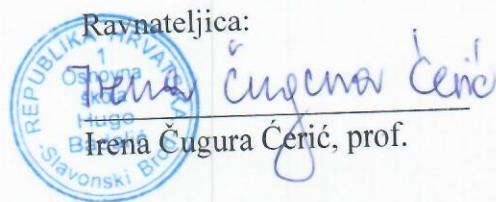 Ravnateljica:
REPUBLIKA HRVATSKA
1
Osnovna
škola
Hugo
Badalić
Slavonski Brod
Irena Čugura Ćerić
Irena Čugura Ćerić, prof.